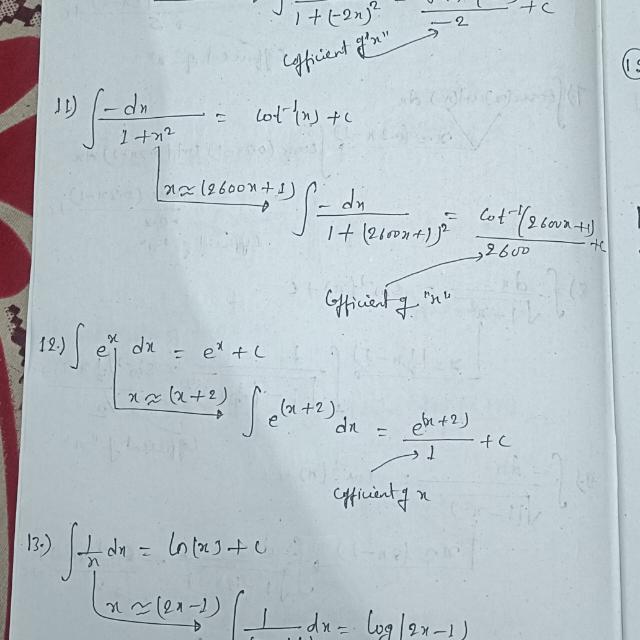 ∫ 1+(-2x)² -2 +c
Cofficient of "x"
11) ∫ -dx / 1+x² = Cot⁻¹(x) +c
x ≈ (2600x+1) ∫ -dx / 1+(2600x+1)² = Cot⁻¹(2600x+1) / 2600 +c
Cofficient of "x"
12.) ∫ eˣ dx = eˣ +c
x ≈ (x+2) ∫ e^(x+2) dx = e^(x+2) / 1 +c
Cofficient of x
13.) ∫ 1/x dx = ln(x) +c
x ≈ (2x-1) ∫ 1 dx = log|2x-1)